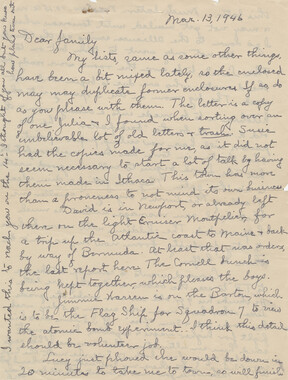 Mar. 13, 1946
Dear family
My lists, same as some other things
have been a bit mixed lately, so the enclosed
may may duplicate former enclosures. If so do
as you please with them. The letter is a copy
of one Julia & I found when sorting over an
unbelievable lot of old letters & trash. Susie
had the copies made for me, as it did not
seem necessary to start a lot of talk by having
them made in Ithaca. This town has more
than a proneness to not mind its own business
David is in Newport or already left
there on the light Cruiser Montpelier, for
a trip up the Atlantic coast to Maine & back
by way of Bermuda. At least that was orders,
the last report here. The Cornell bunch is
being kept together, which pleases the boys.
Jimmie Warren is on the Barton, which
is to be the Flag Ship for Squadron 7 to view
the atomic bomb experiment. I think this detail
should be volunteer job.
Lucy just phoned she would be down in
20 minutes to take me to town, so will finish
I wanted this to reach you on the 14. I thought